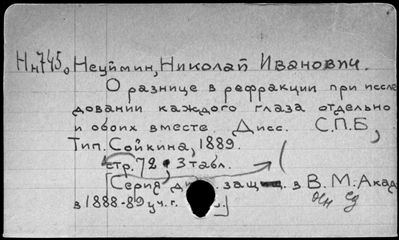 Нн745. Неуймин, Николай Иванович.
О разнице в рефракции при иссле
довании каждого глаза отдельно
и обоих вместе. Дисс. С.П.Б,
Тип. Сойкина, 1889.
стр. 72. 3 табл.
[Серия защ. в В. М. Акад
в 1888-89 уч. г.